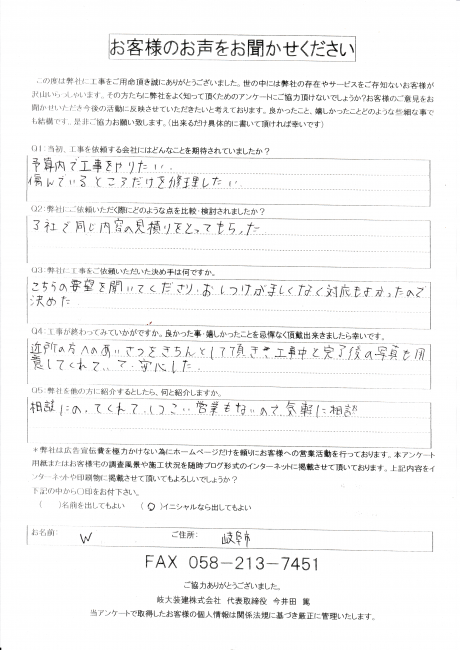 お客様のお声をお聞かせください
この度は弊社に工事をご用命頂き誠にありがとうございました。世の中には弊社の存在やサービスをご存知ないお客様が
沢山いらっしゃいます。その方たちに弊社をよく知って頂くためのアンケートにご協力頂けないでしょうか?お客様のご意見をお
聞かせいただき今後の活動に反映させていただきたいと考えております。良かったこと、嬉しかったことどのような些細な事で
も結構です。是非ご協力お願い致します。(出来るだけ具体的に書いて頂ければ幸いです)
Q1:当初、工事を依頼する会社にはどんなことを期待されていましたか?
予算内で工事をやりたい.
傷んでいるところだけを修理したい.
Q2:弊社にご依頼いただく際にどのような点を比較・検討されましたか?
3社で同じ内容の見積りをとってもらった
Q3:弊社に工事をご依頼いただいた決め手は何ですか。
こちらの要望を聞いてくださり.おしつけがましくなく対応もよかったので
決めた
Q4:工事が終わってみていかがですか。良かった事・嬉しかったことを忌憚なく頂戴出来きましたら幸いです。
近所の方へのあいさつをきちんとして頂き、工事中と完了後の写真も用
意してくれていて.安心した.
Q5:弊社を他の方に紹介するとしたら、何と紹介しますか。
相談にのってくれて.しつこい営業もないので.気軽に相談
*弊社は広告宣伝費を極力かけない為にホームページだけを頼りにお客様への営業活動を行っております。本アンケート
用紙またはお客様宅の調査風景や施工状況を随時ブログ形式のインターネットに掲載させて頂いております。上記内容をイ
ンターネットや印刷物に掲載させて頂いてもよろしいでしょうか?
下記の中から〇印をお付下さい。
( )名前を出してもよい (○)イニシャルなら出してもよい
お名前: W ご住所: 岐阜市
FAX 058-213-7451
ご協力ありがとうございました。
岐大装建株式会社 代表取締役 今井田 篤
当アンケートで取得したお客様の個人情報は関係法規に基づき厳正に管理いたします。